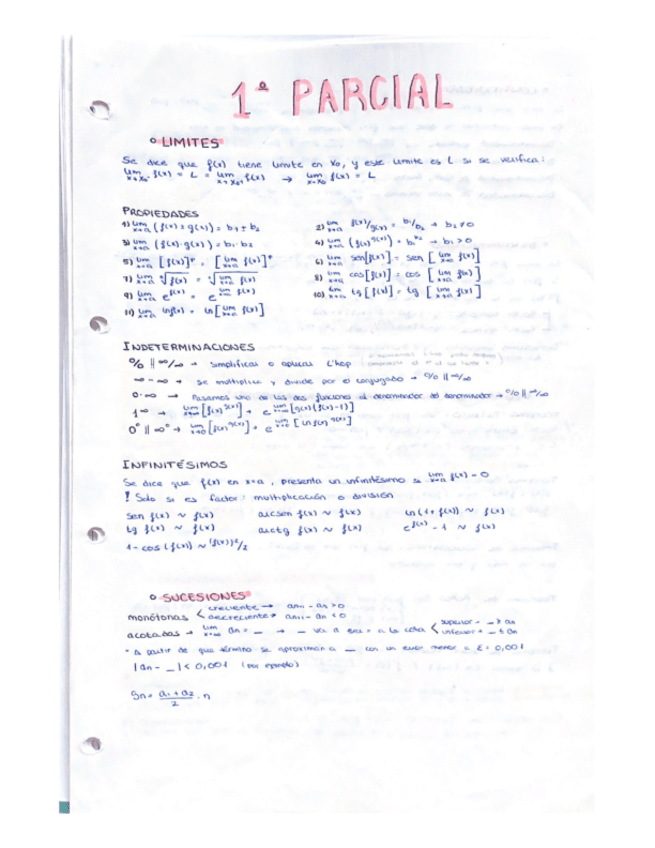 1ª PARCIAL
° LIMITES
Se dice que f(x) tiene límite en x₀, y este límite es L si se verifica:
lim x→x₀⁻ f(x) = L = lim x→x₀⁺ f(x) → lim x→x₀ f(x) = L
PROPIEDADES
1) lim x→a (f(x) ± g(x)) = b₁ ± b₂
2) lim x→a f(x)/g(x) = b₁/b₂ → b₂ ≠ 0
3) lim x→a (f(x)·g(x)) = b₁·b₂
4) lim x→a (f(x)^g(x)) = b₁^b₂ → b₁ > 0
5) lim x→a [f(x)]ᵖ = [lim x→a f(x)]ᵖ
6) lim x→a sen[f(x)] = sen [lim x→a f(x)]
7) lim x→a √f(x) = √lim x→a f(x)
8) lim x→a cos[f(x)] = cos [lim x→a f(x)]
9) lim x→a e^f(x) = e^lim x→a f(x)
10) lim x→a tg[f(x)] = tg [lim x→a f(x)]
11) lim x→a ln f(x) = ln [lim x→a f(x)]
INDETERMINACIONES
0/0 || ∞/∞ → simplificas o aplicas L'hop
∞ - ∞ → se multiplica y divide por el conjugado → 0/0 || ∞/∞
0·∞ → Pasamos uno de las dos funciones al denominador del denominador → 0/0 || ∞/∞
1^∞ → lim [f(x)^g(x)] → e^lim [g(x)(f(x)-1)]
0⁰ || ∞⁰ → lim [f(x)^g(x)] → e^lim [ln f(x)^g(x)]
INFINITÉSIMOS
Se dice que f(x) en x=a, presenta un infinitésimo si lim x→a f(x) = 0
! Solo si es factor: multiplicación o división
sen f(x) ~ f(x) arcsen f(x) ~ f(x) ln(1+f(x)) ~ f(x)
tg f(x) ~ f(x) arctg f(x) ~ f(x) e^f(x) - 1 ~ f(x)
1 - cos(f(x)) ~ (f(x))²/2
° SUCESIONES
monótonas < creciente → an+1 - an > 0
decreciente → an+1 - an < 0
acotadas → lim x→∞ an = _ → _ va a ser = a la cota < superior → _ ≥ an
inferior → _ ≤ an
* A partir de que término se aproximan a _ con un error menor a ε = 0,001
|an - _| < 0,001 (por ejemplo)
Sn = a₁ + a₂ / 2 · n